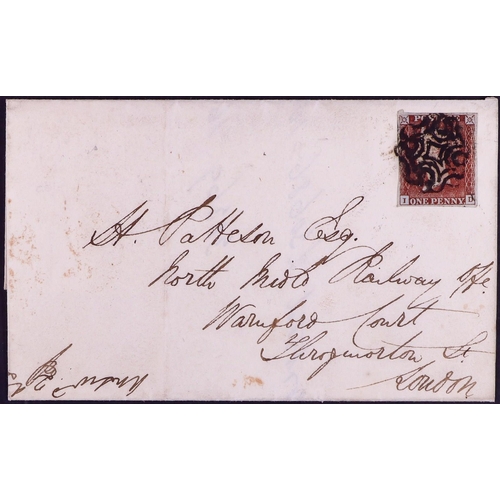 POSTAGE
I L
ONE PENNY
H. Patteson Esq.
North Midd Railway Offe
Warnford Court
Throgmorton St.
London